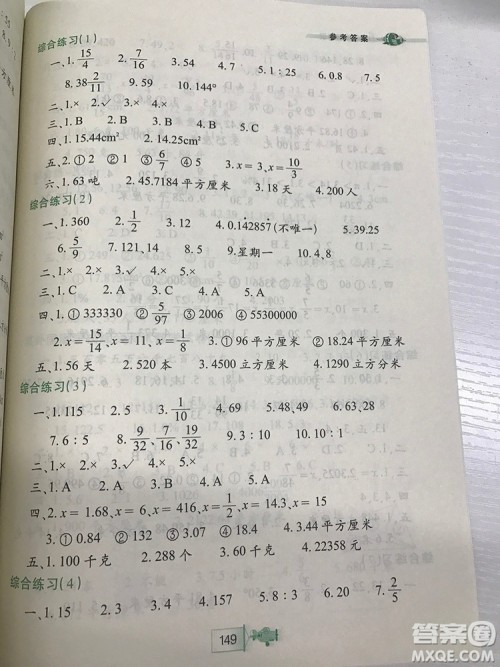 参考答案
综合练习(1)
一、1. 15/4 2. 7/16 3. 54 4. 7 5. 1:25 6. 0.8 7. 5
8. 38 2/11 9. 10 10. 144°
二、1. × 2. ✓ 3. × 4. ×
三、1. C 2. B 3. A 4. B 5. C
四、1. 15.44cm² 2. 14.25cm²
五、2. ① 2 ② 1 ③ 6/7 ④ 5 3. x=3, x=10/3
六、1. 63 吨 2. 45.7184 平方厘米 3. 18 天 4. 200 人
综合练习(2)
一、1. 360 2. 1/2 3. 12 4. 0.1̇42857̇(不唯一) 5. 39.25
6. 5/9 7. 121,14 8. 5 9. 星期一 10. 4,8
二、1. × 2. × 3. × 4. ×
三、1. C 2. C 3. A 4. A 5. A
四、1. ① 333330 ② 5/97 ③ 2006 ④ 55300000
2. x=15/14, x=11, x=1/8 3. ① 96 平方厘米 ② 18.24 平方厘米
五、1. 56 天 2. 520 本 3. 4500 立方厘米 4. 1290 立方分米
综合练习(3)
一、1. 115 2. 5 3. 1/10 4. 69 5. 48、 6. 63、
7. 6:5 8. 9/32、7/16、19/32 9. 3:10 10. 10:1
二、1. × 2. ✓ 3. × 4. ×
三、1. A 2. A 3. A 4. A
四、2. x=1.68, x=4, x=6, x=1/2, x=14.3, x=15
3. ① 0.54 ② 132 ③ 3.07 ④ 18.4 4. 3.44 平方厘米
五、1. 100 千克 2. 288 个 3. 9:10 4. 22358 元
综合练习(4)
一、1. 15 2. 3 3. 4 4. 157 5. 8:3 6. 20 7. 2/5
149
答案圈
MXQE.COM